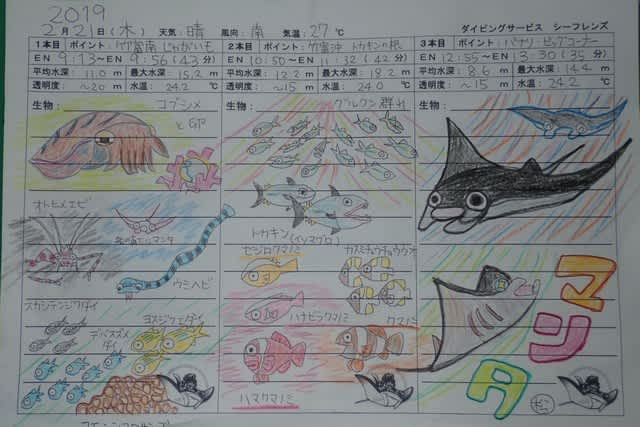 2019
2月21日(木) 天気: 晴 風向: 南 気温: 27℃ ダイビングサービス シーフレンズ
1本目 ポイント: 竹富南 じゃがいも
EN 9:13~EN 9:56(43分)
平均水深: 11.0m 最大水深: 15.2m
透明度: ~20m 水温: 24.2℃
生物: コブシメ
と卵
オトヒメエビ
ウミヘビ
スカシテンジクダイ
デバスズメ
ダイ
ヨスジフエダイ
2本目 ポイント: 竹富沖 トカキンの根
EN 10:50~EN 11:32(42分)
平均水深: 12.2m 最大水深: 18.2m
透明度: ~15m 水温: 24.0℃
生物: グルクン群れ
トカキン(イソマグロ)
セジロクマノミ
カスミチョウチョウウオ
ハナビラクマノミ
クマノミ
ハマクマノミ
3本目 ポイント: パナリ・ビッグコーナー
EN 12:55~EN 13:30(35分)
平均水深: 8.6m 最大水深: 14.4m
透明度: ~15m 水温: 24.2℃
生物:
マ
ン
タ